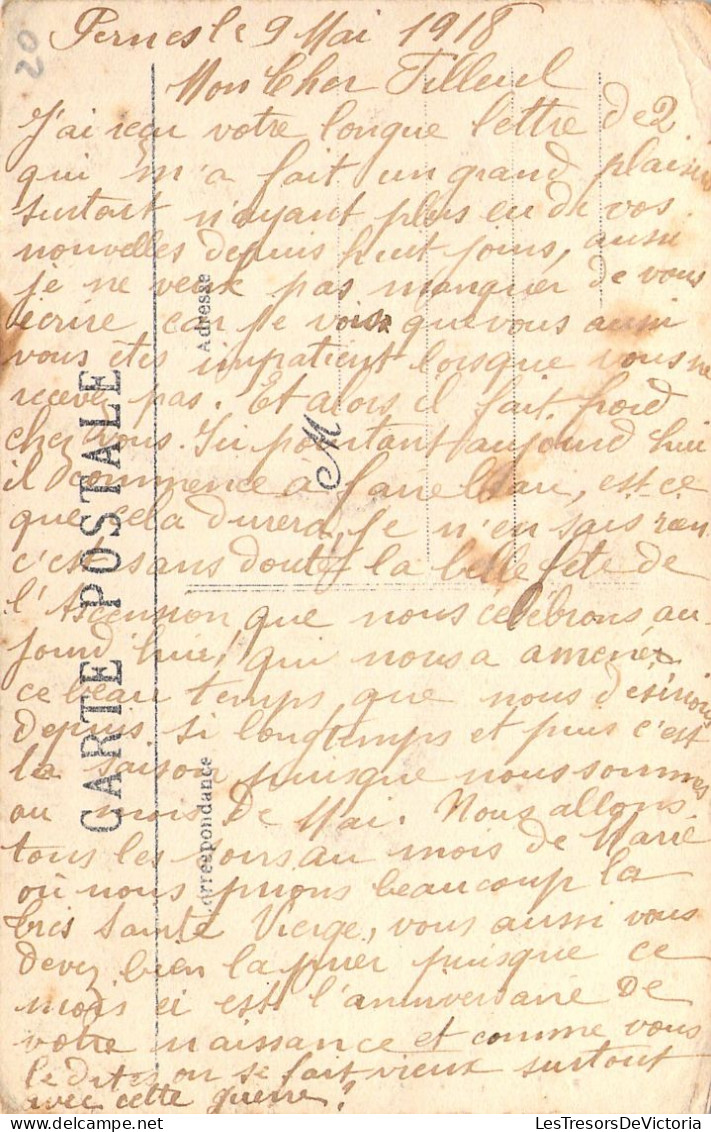 20
Pernes le 9 Mai 1918
Mon Cher Filleul
J'ai reçu votre longue lettre de 2
qui m'a fait un grand plaisir
surtout n'ayant plus eu de vos
nouvelles depuis huit jours, aussi
je ne veux pas manquer de vous
écrire car je vois que vous aussi
vous êtes impatient lorsque vous ne
recevez pas. Et alors il fait froid
chez vous. Ici pourtant aujourd'hui
il commence à faire beau, est-ce
que cela durera, je n'en sais rien
c'est sans doute la belle fête de
l'Ascension, que nous celébrons au-
jourd'hui, qui nous a amené
ce beau temps que nous désirions
depuis si longtemps et puis c'est
la saison puisque nous sommes
au mois de Mai. Nous allons
tous les soirs au mois de Marie
où nous prions beaucoup la
Très Sainte Vierge, vous aussi vous
devez bien la prier puisque ce
mois ci est l'anniversaire de
votre naissance et comme vous
le dites on se fait vieux surtout
avec cette guerre!
CARTE POSTALE
Correspondance
Adresse
M
LesTresorsDeVictoria